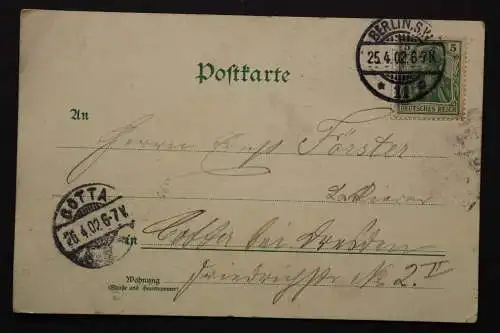 BERLIN, S.W.
25.4.02.6-7N.
* 11 e
5
DEUTSCHES REICH
Postkarte
An
Herrn Ernst Förster
COTTA
26.4.02.6-7V.
in Cotta bei Dresden
Friedrichstr № 2. II
Wohnung
(Straße und Hausnummer)